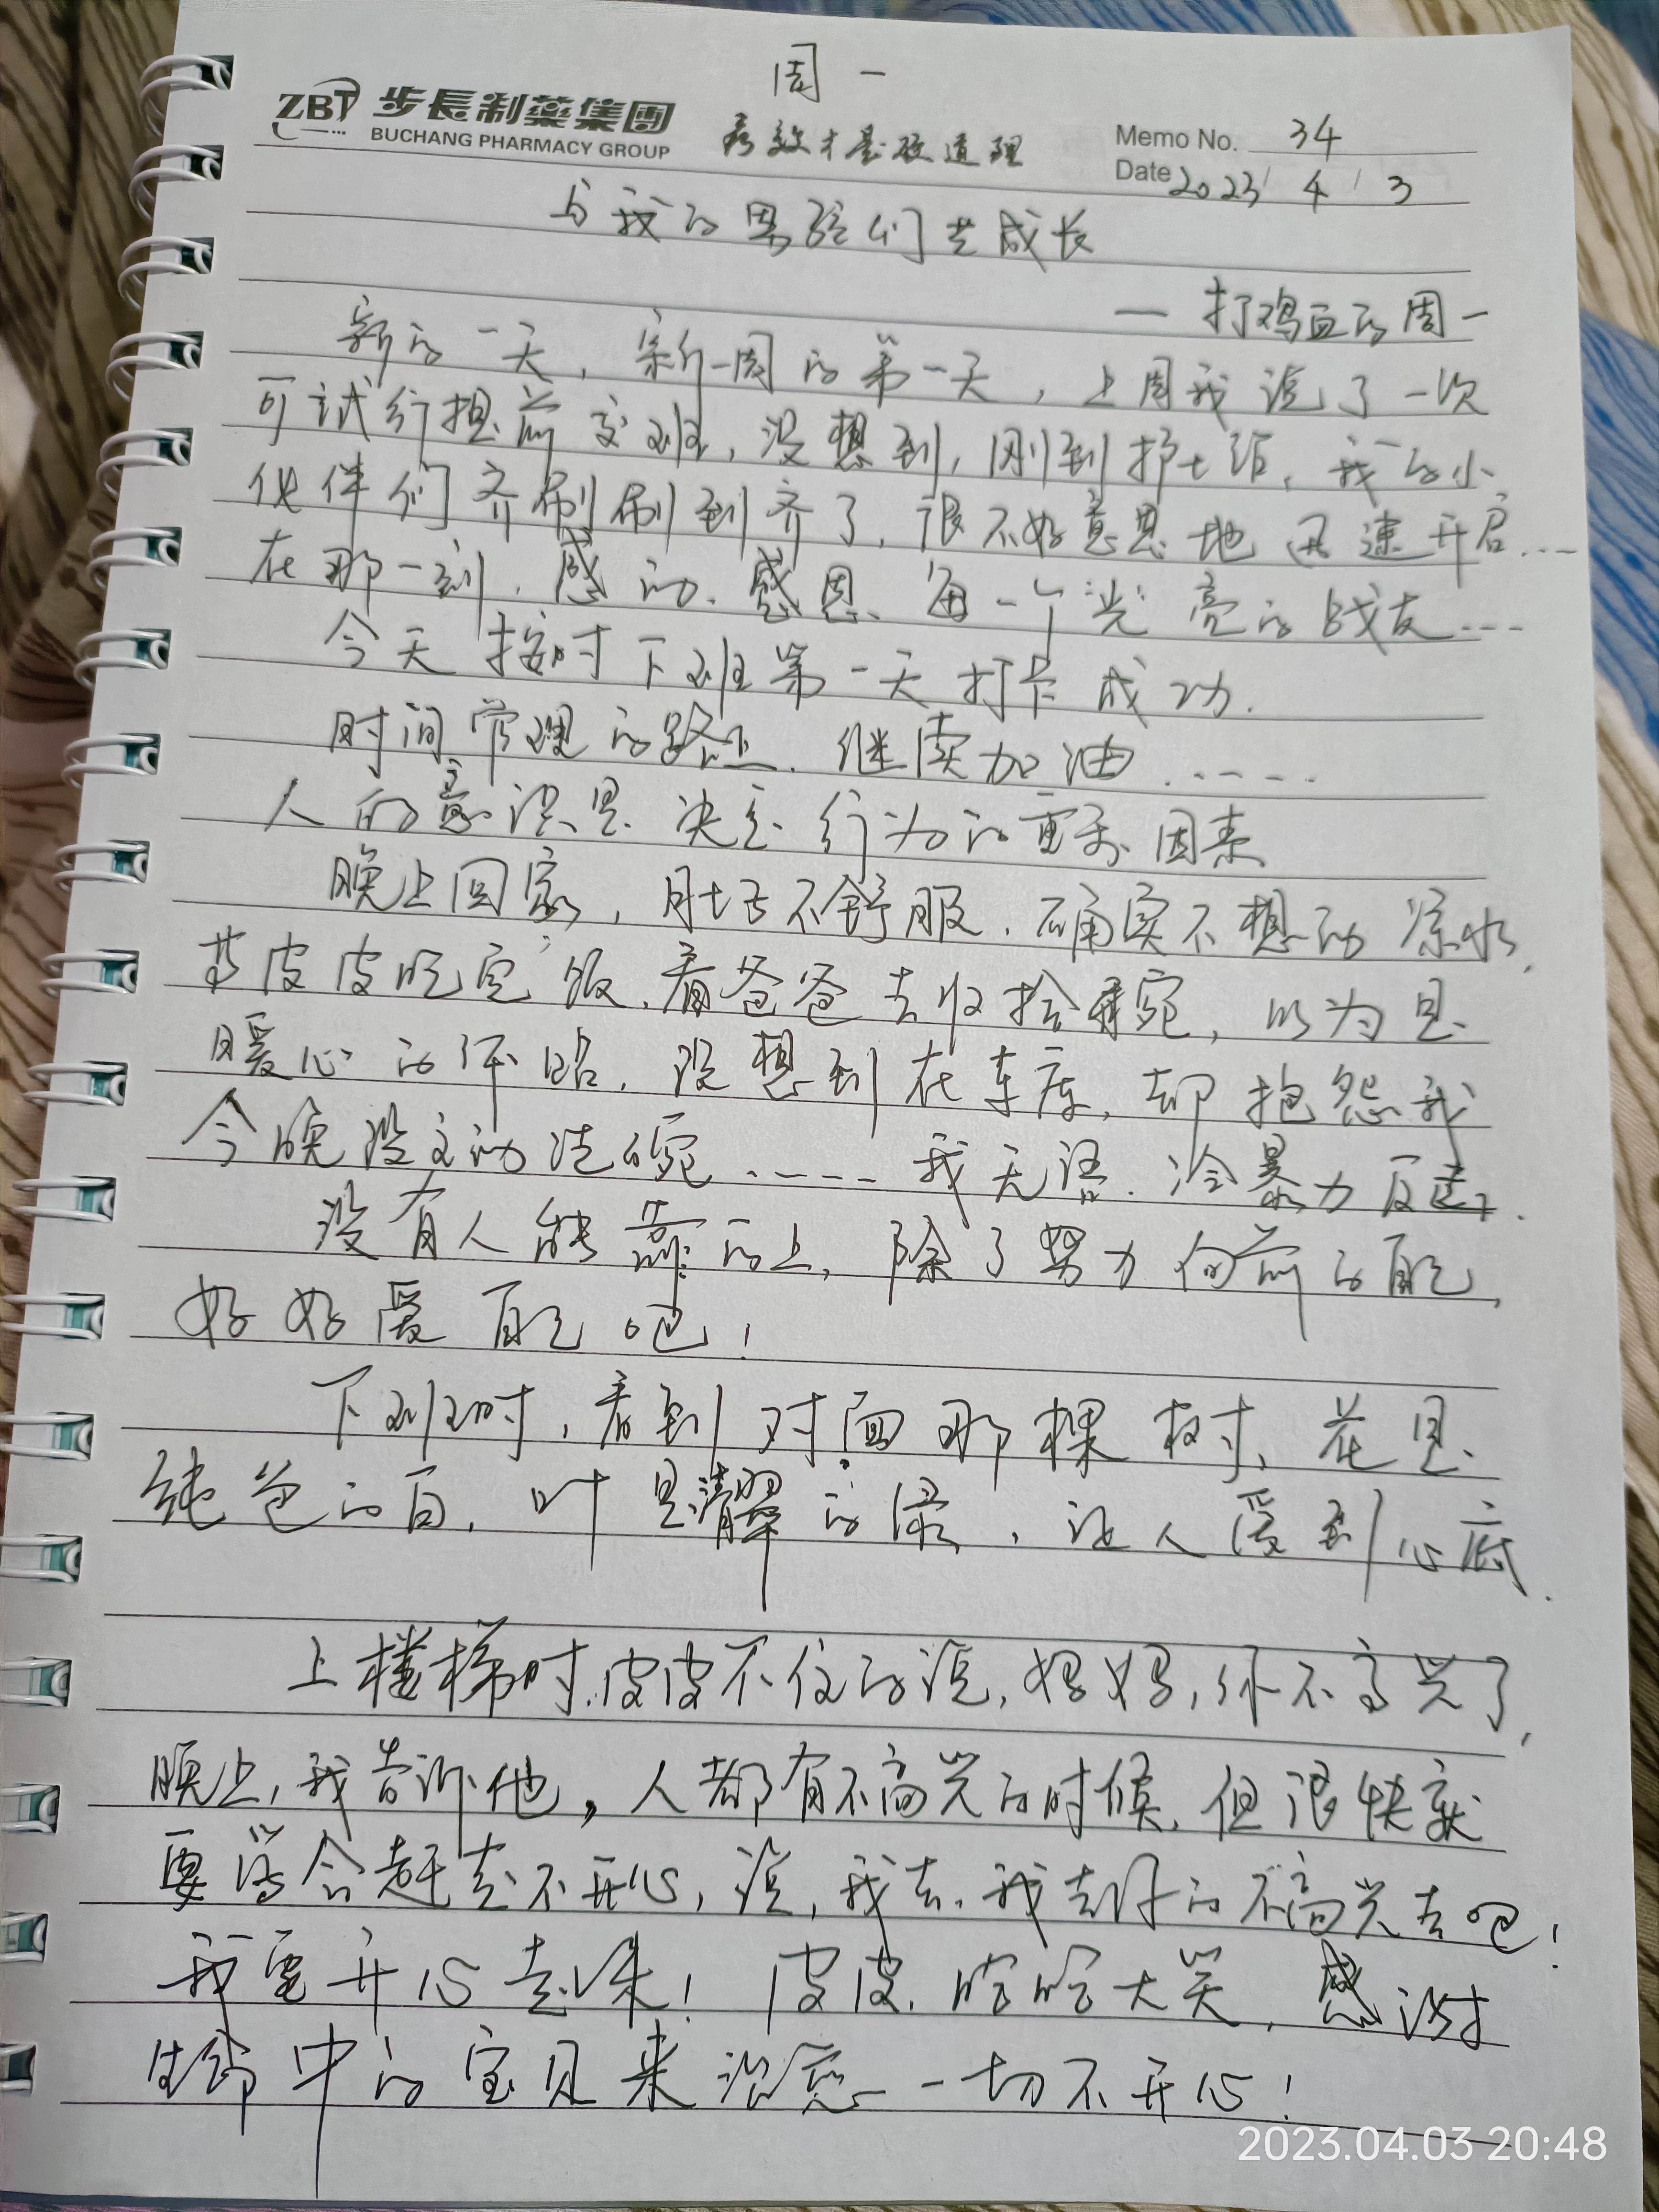 周一
ZBT 步長制藥集團
BUCHANG PHARMACY GROUP
有效才是硬道理
Memo No. 34
Date 2023/ 4 / 3
与我的男孩们共成长
— 打鸡血的周一
新的一天，新一周的第一天，上周我说了一次
可试行提前交班，没想到，刚到护士站，我的小
伙伴们齐刷刷到齐了，很不好意思地迅速开启……
在那一刻，感动、感恩、每一个光亮的战友……
今天按时下班第一天打卡成功.
时间管理的路上，继续加油……
人的意识是决定行为的重要因素
晚上回家，肚子不舒服，确实不想动凉水，
等皮皮吃完饭，看爸爸去收拾碗，以为是
暖心的一路，没想到在车库，却抱怨我
今晚没主动洗碗…… 我无语，冷暴力反击.
没有人能靠的上，除了努力向前的自己，
好好爱自己吧！
下班时，看到对面那棵树，花是
纯色的白，叶是清翠的绿，让人爱到心底.
上楼梯时，皮皮不住的说，妈妈，你不高兴了，
晚上，我告诉他，人都有不高兴的时候，但很快就
要学会赶走不开心，说，我去，我去你的不高兴去吧！
我要开心起来！皮皮，哈哈大笑，感谢
生命中的宝贝来治愈一切不开心！
2023.04.03 20:48